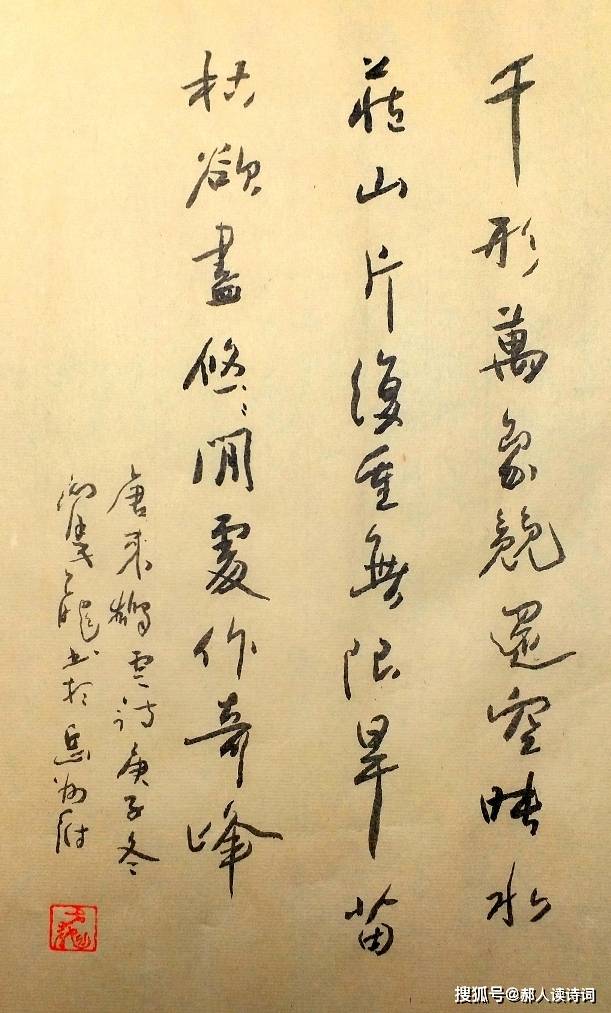 千形萬象競還空映水
藏山片復重無限旱苗
枯欲盡悠々閒處作奇峰
唐來鵠雲詩庚子冬
书於岳州府
搜狐号@郝人读诗词